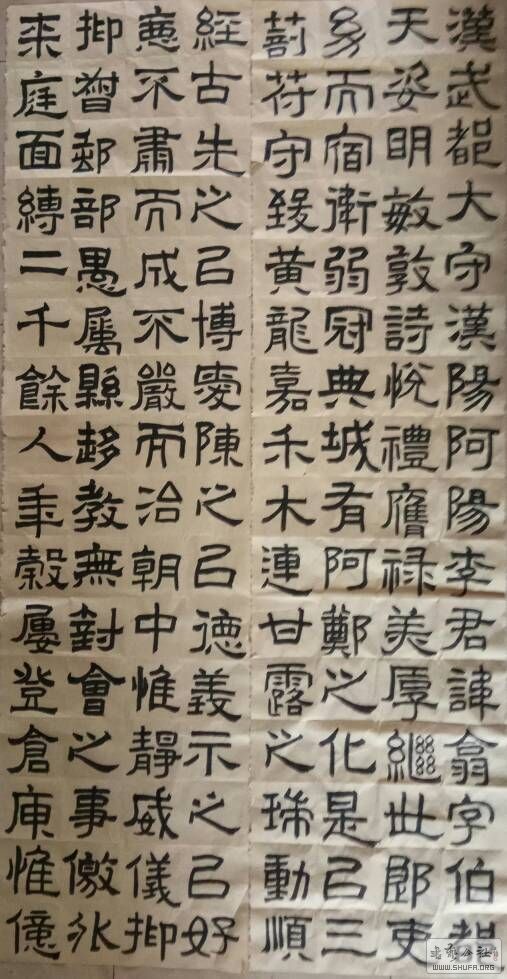 漢武都大守漢陽阿陽李君諱翕字伯都
天姿明敏敦詩悅禮膺祿美厚繼世郎吏
幼而宿衛弱冠典城有阿鄭之化是㠯三
剖符守致黃龍嘉禾木連甘露之瑞動順
經古先之㠯博愛陳之㠯德義示之㠯好
惡不肅而成不嚴而治朝中惟靜威儀抑
抑督郵部愚屬縣趍教無對會之事儌外
来庭面縛二千餘人年穀屢登倉庾惟億
書法公社
WWW.SHUFA.ORG